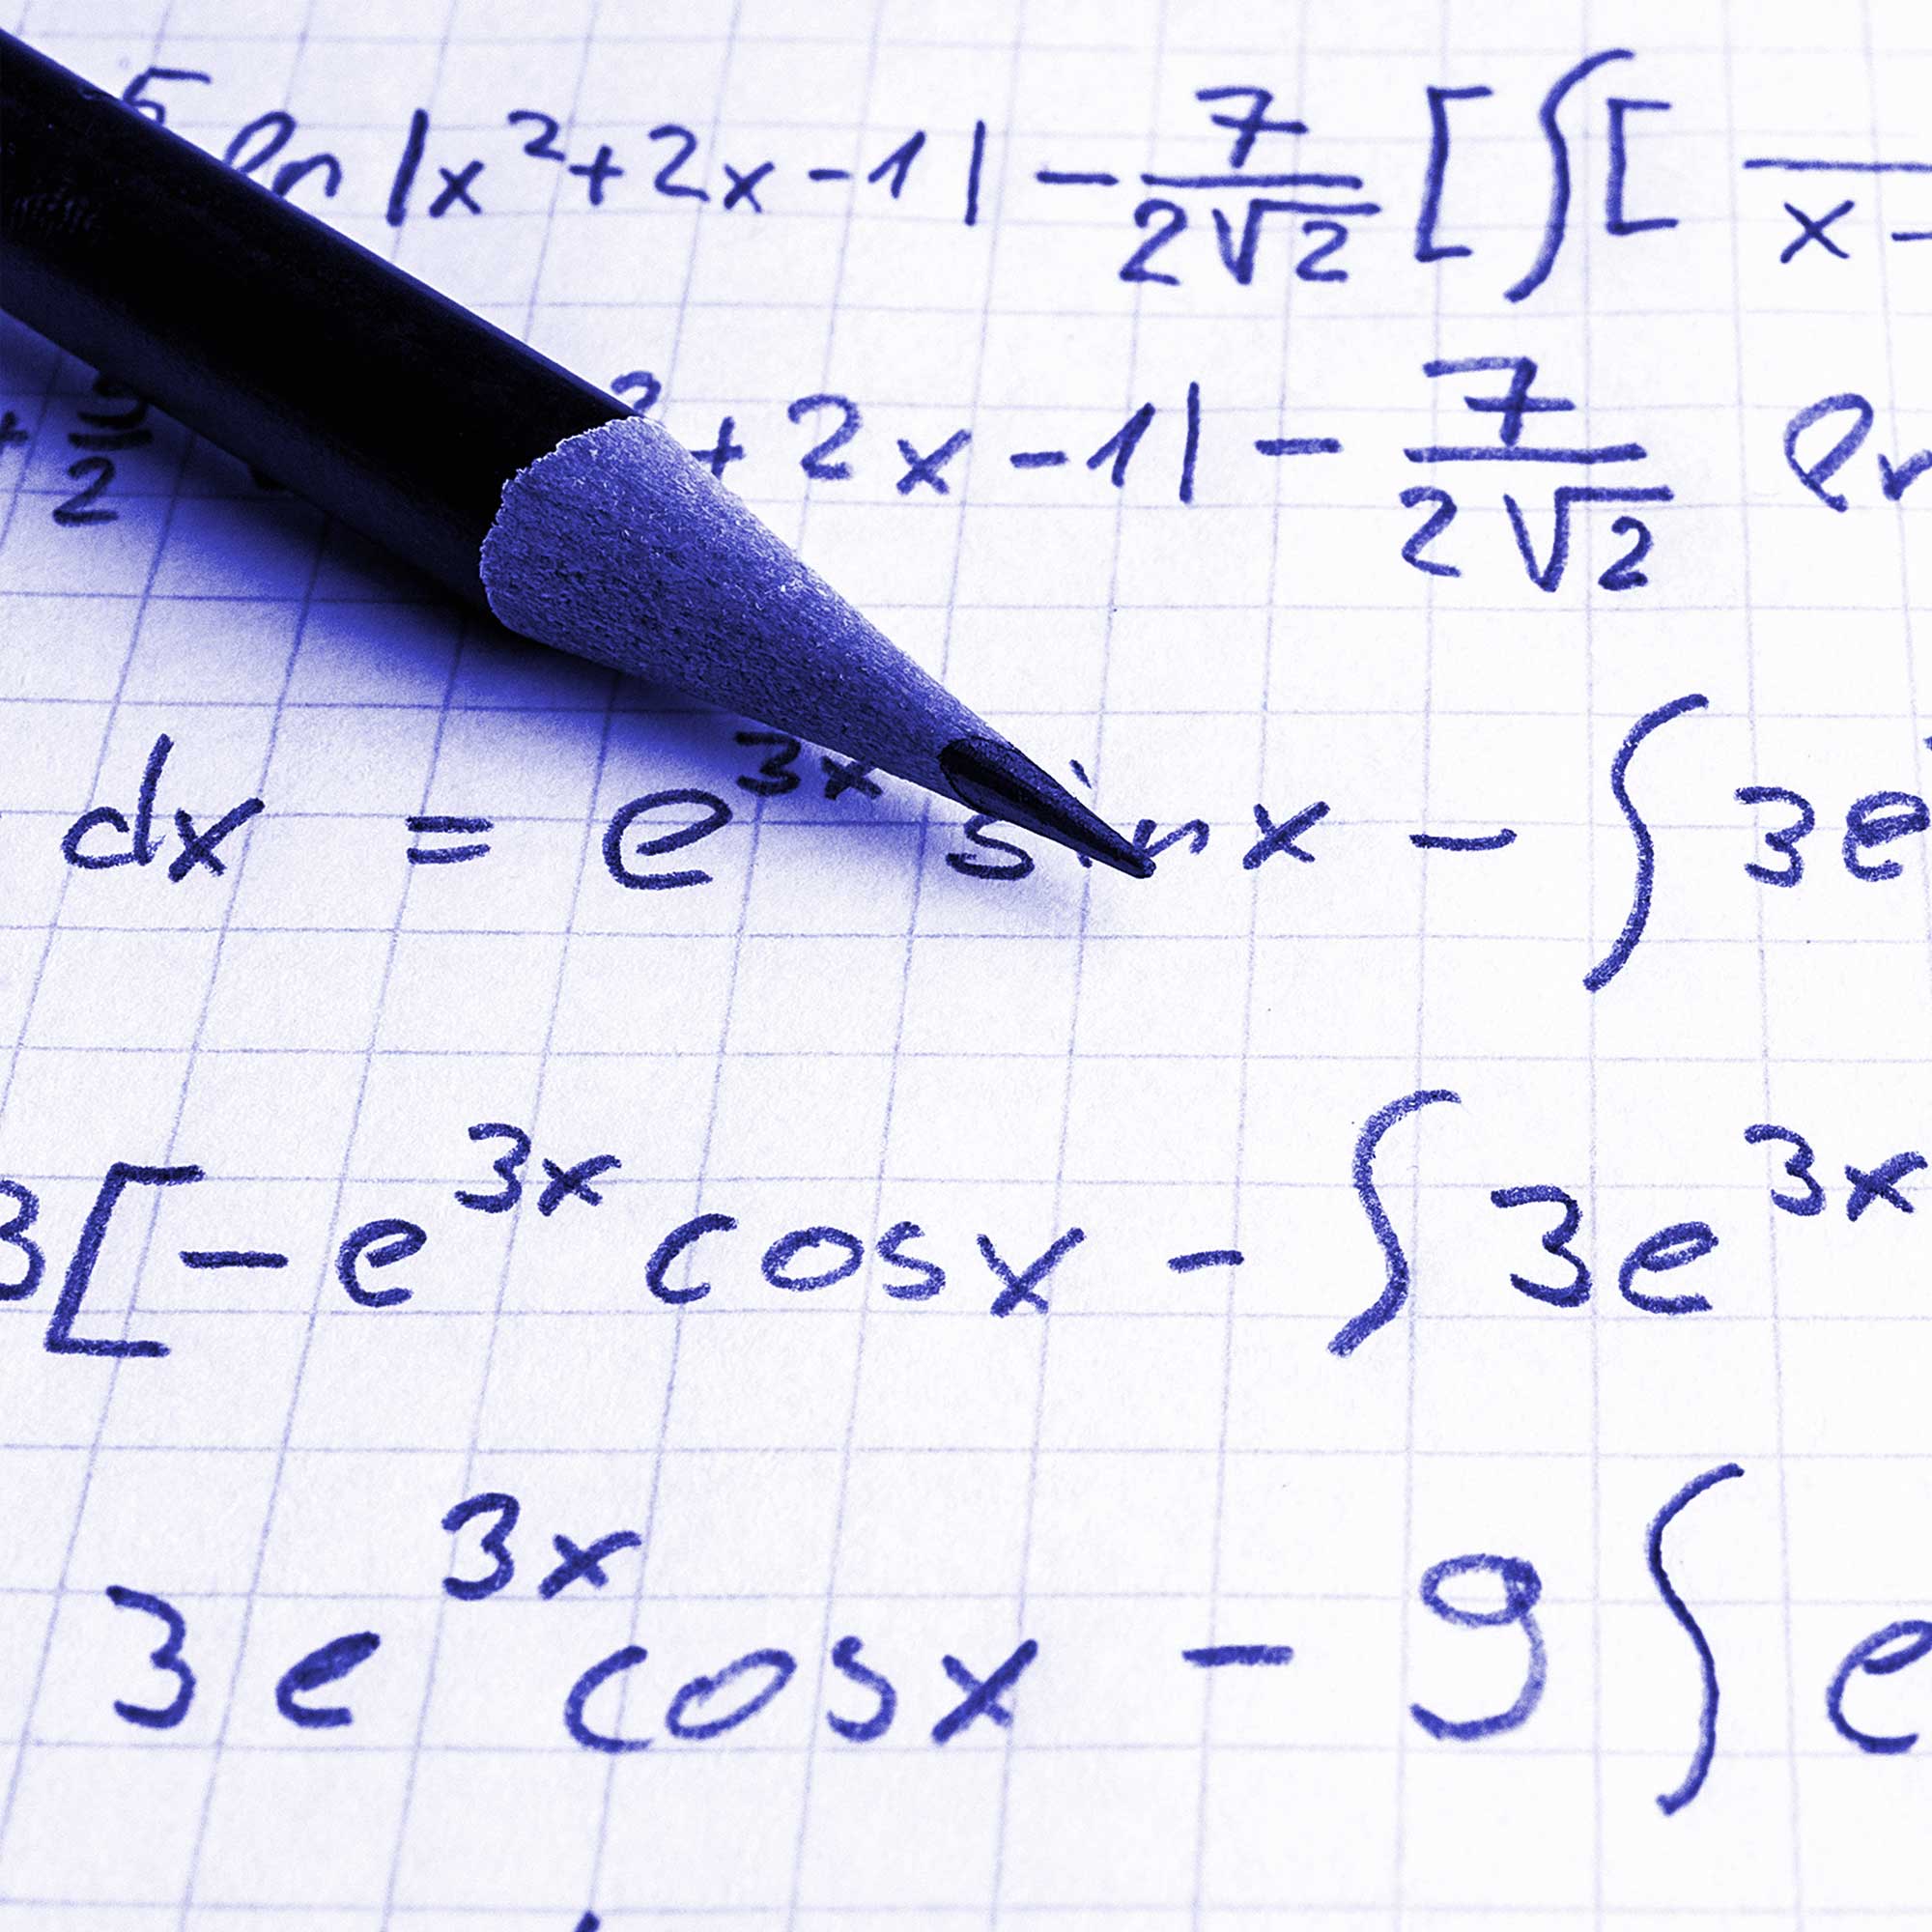 5 ln |x²+2x-1| - 7/(2√2) [∫[ x-
+ 2 ² + 2x-1| - 7/(2√2) ln
dx = e³ˣ sin x - ∫3e
3[-e³ˣ cosx - ∫3e³ˣ
3e³ˣ cosx - 9∫e